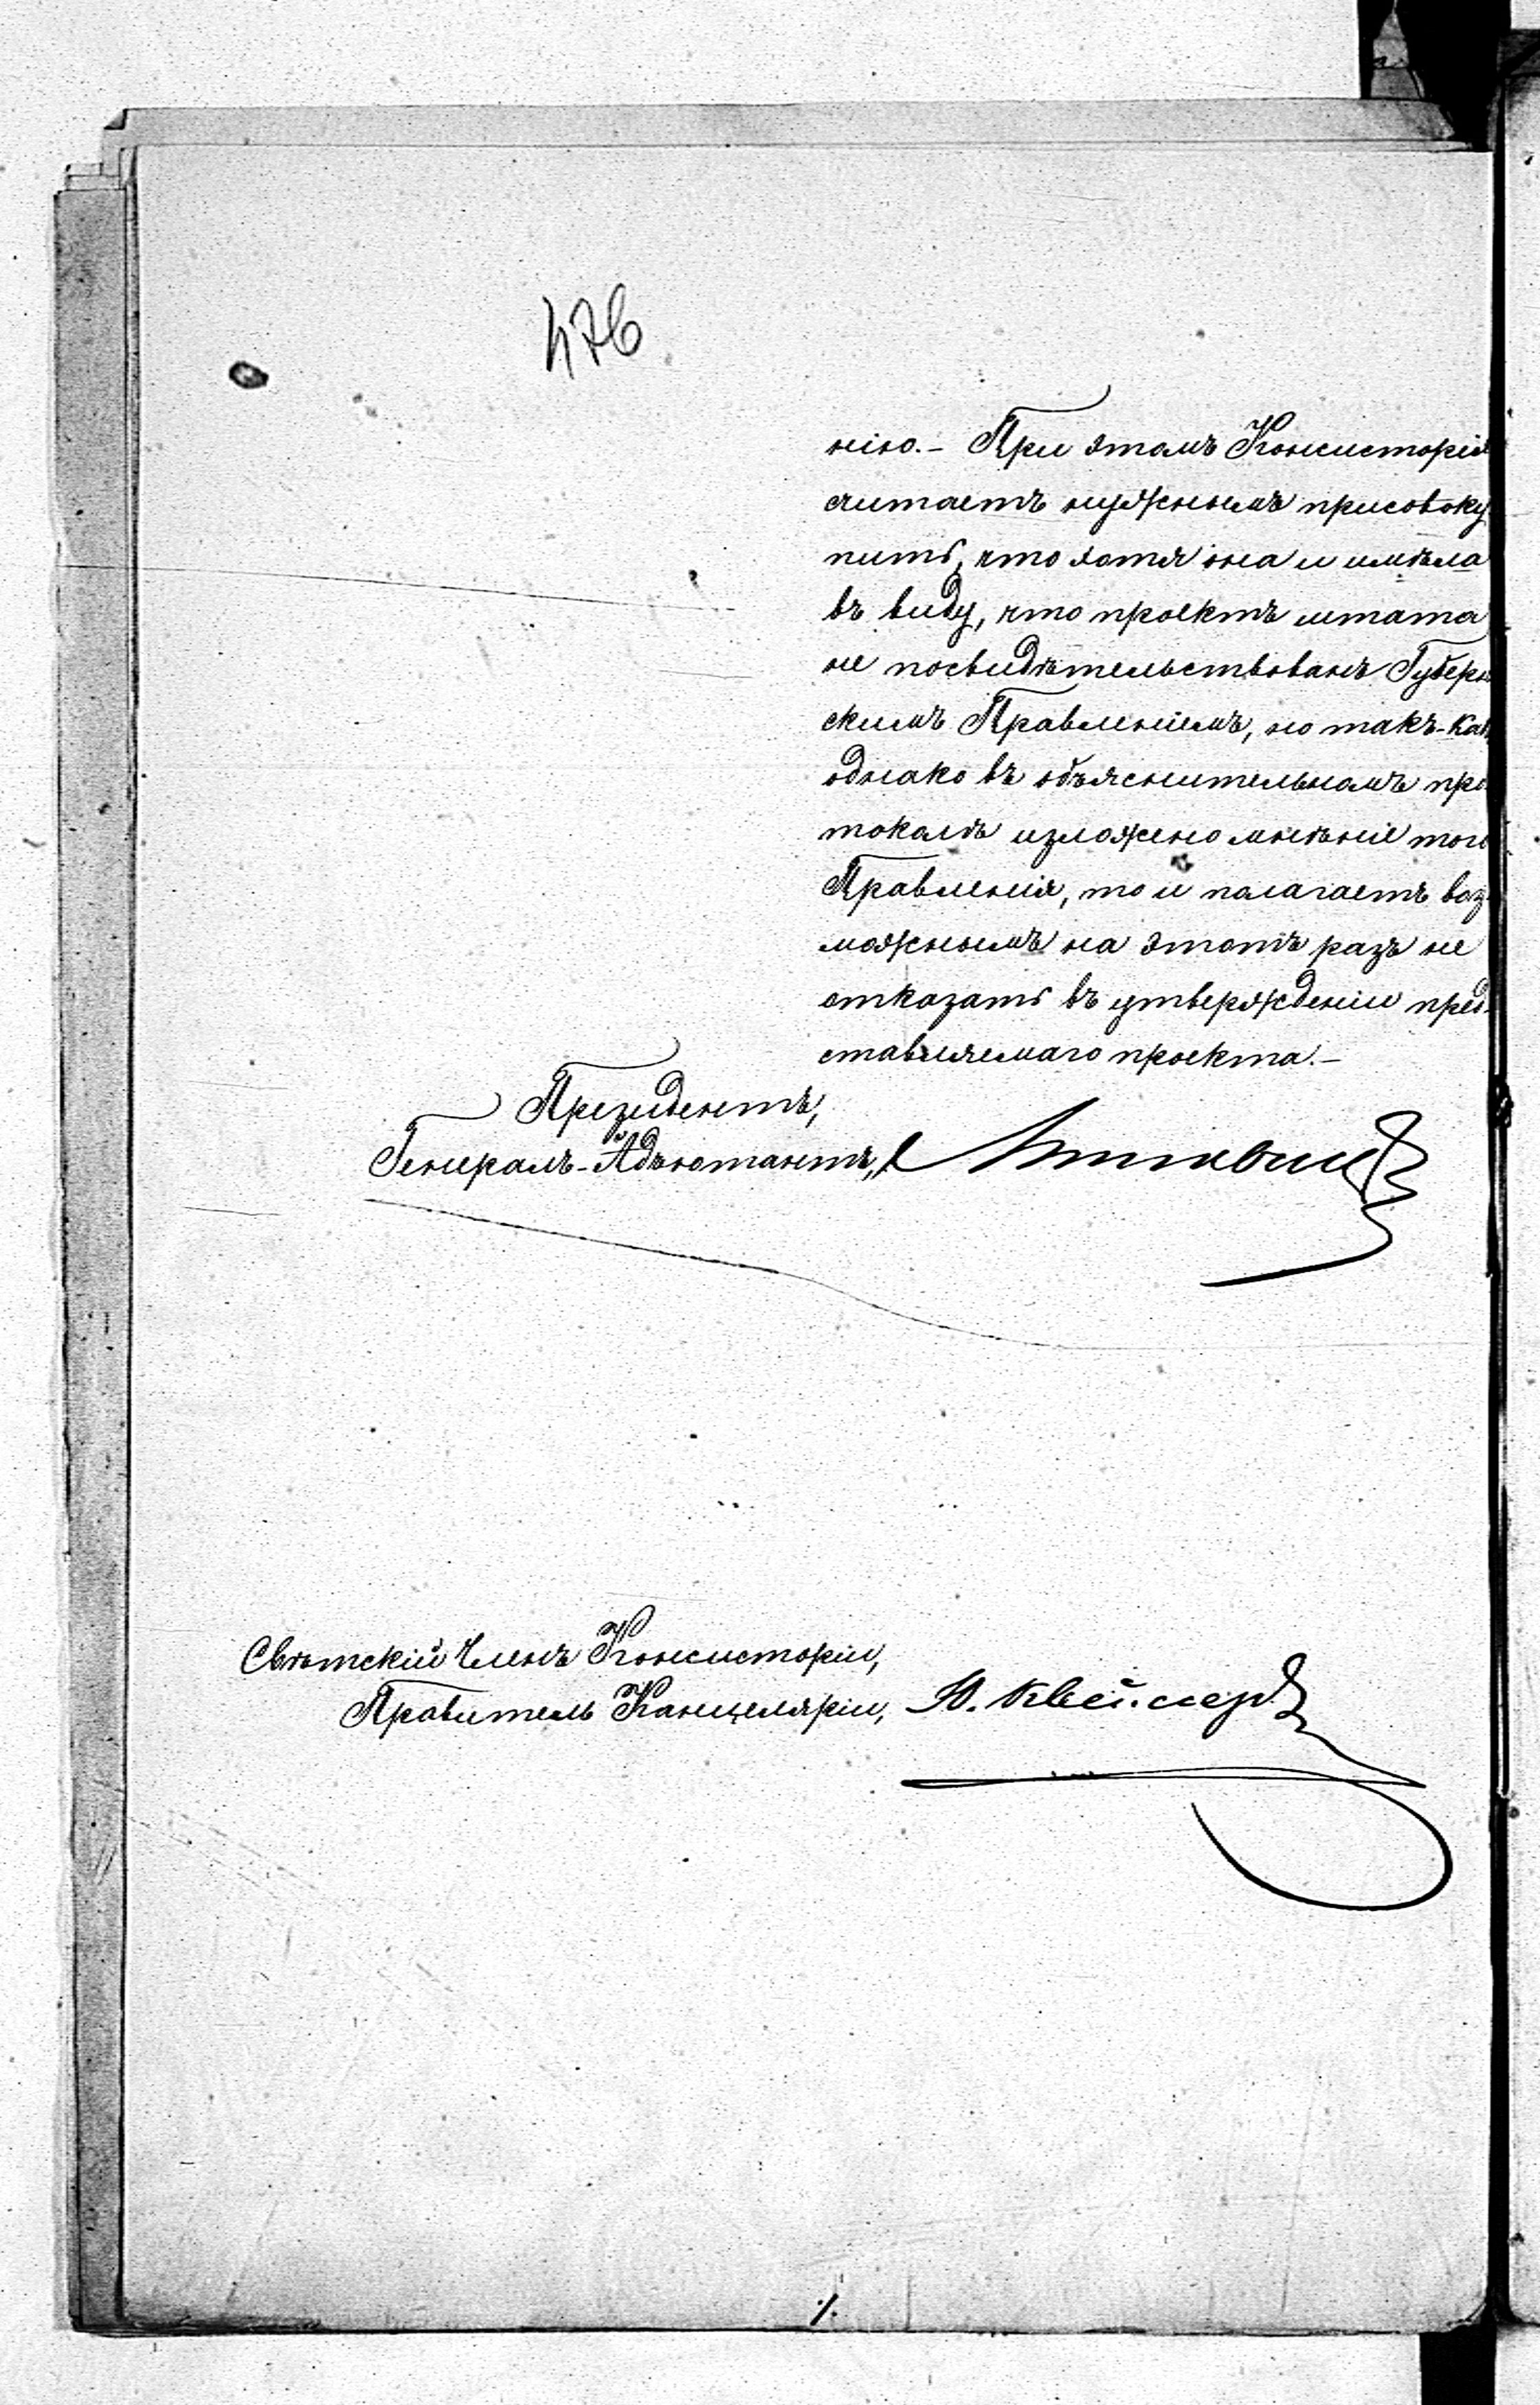 476
нію.- При этомъ Консисторія
считаетъ нужнымъ присовоку
пить, что хотя она и имѣла
въ виду, что проектъ штата
не посвидѣтельствованъ Губерн
скимъ Правленіемъ, но такъ-как
однако въ объяснительномъ про
токолѣ изложено мнѣніе того
Правленія, то и полагаетъ воз-
можнымъ на этотъ разъ не
отказать въ утвержденіи пред-
ставляемаго проекта.-
Президентъ,
Генералъ-Адъютантъ,
Свѣтскій Членъ Консисторіи,
Правитель Канцеляріи, Ю.